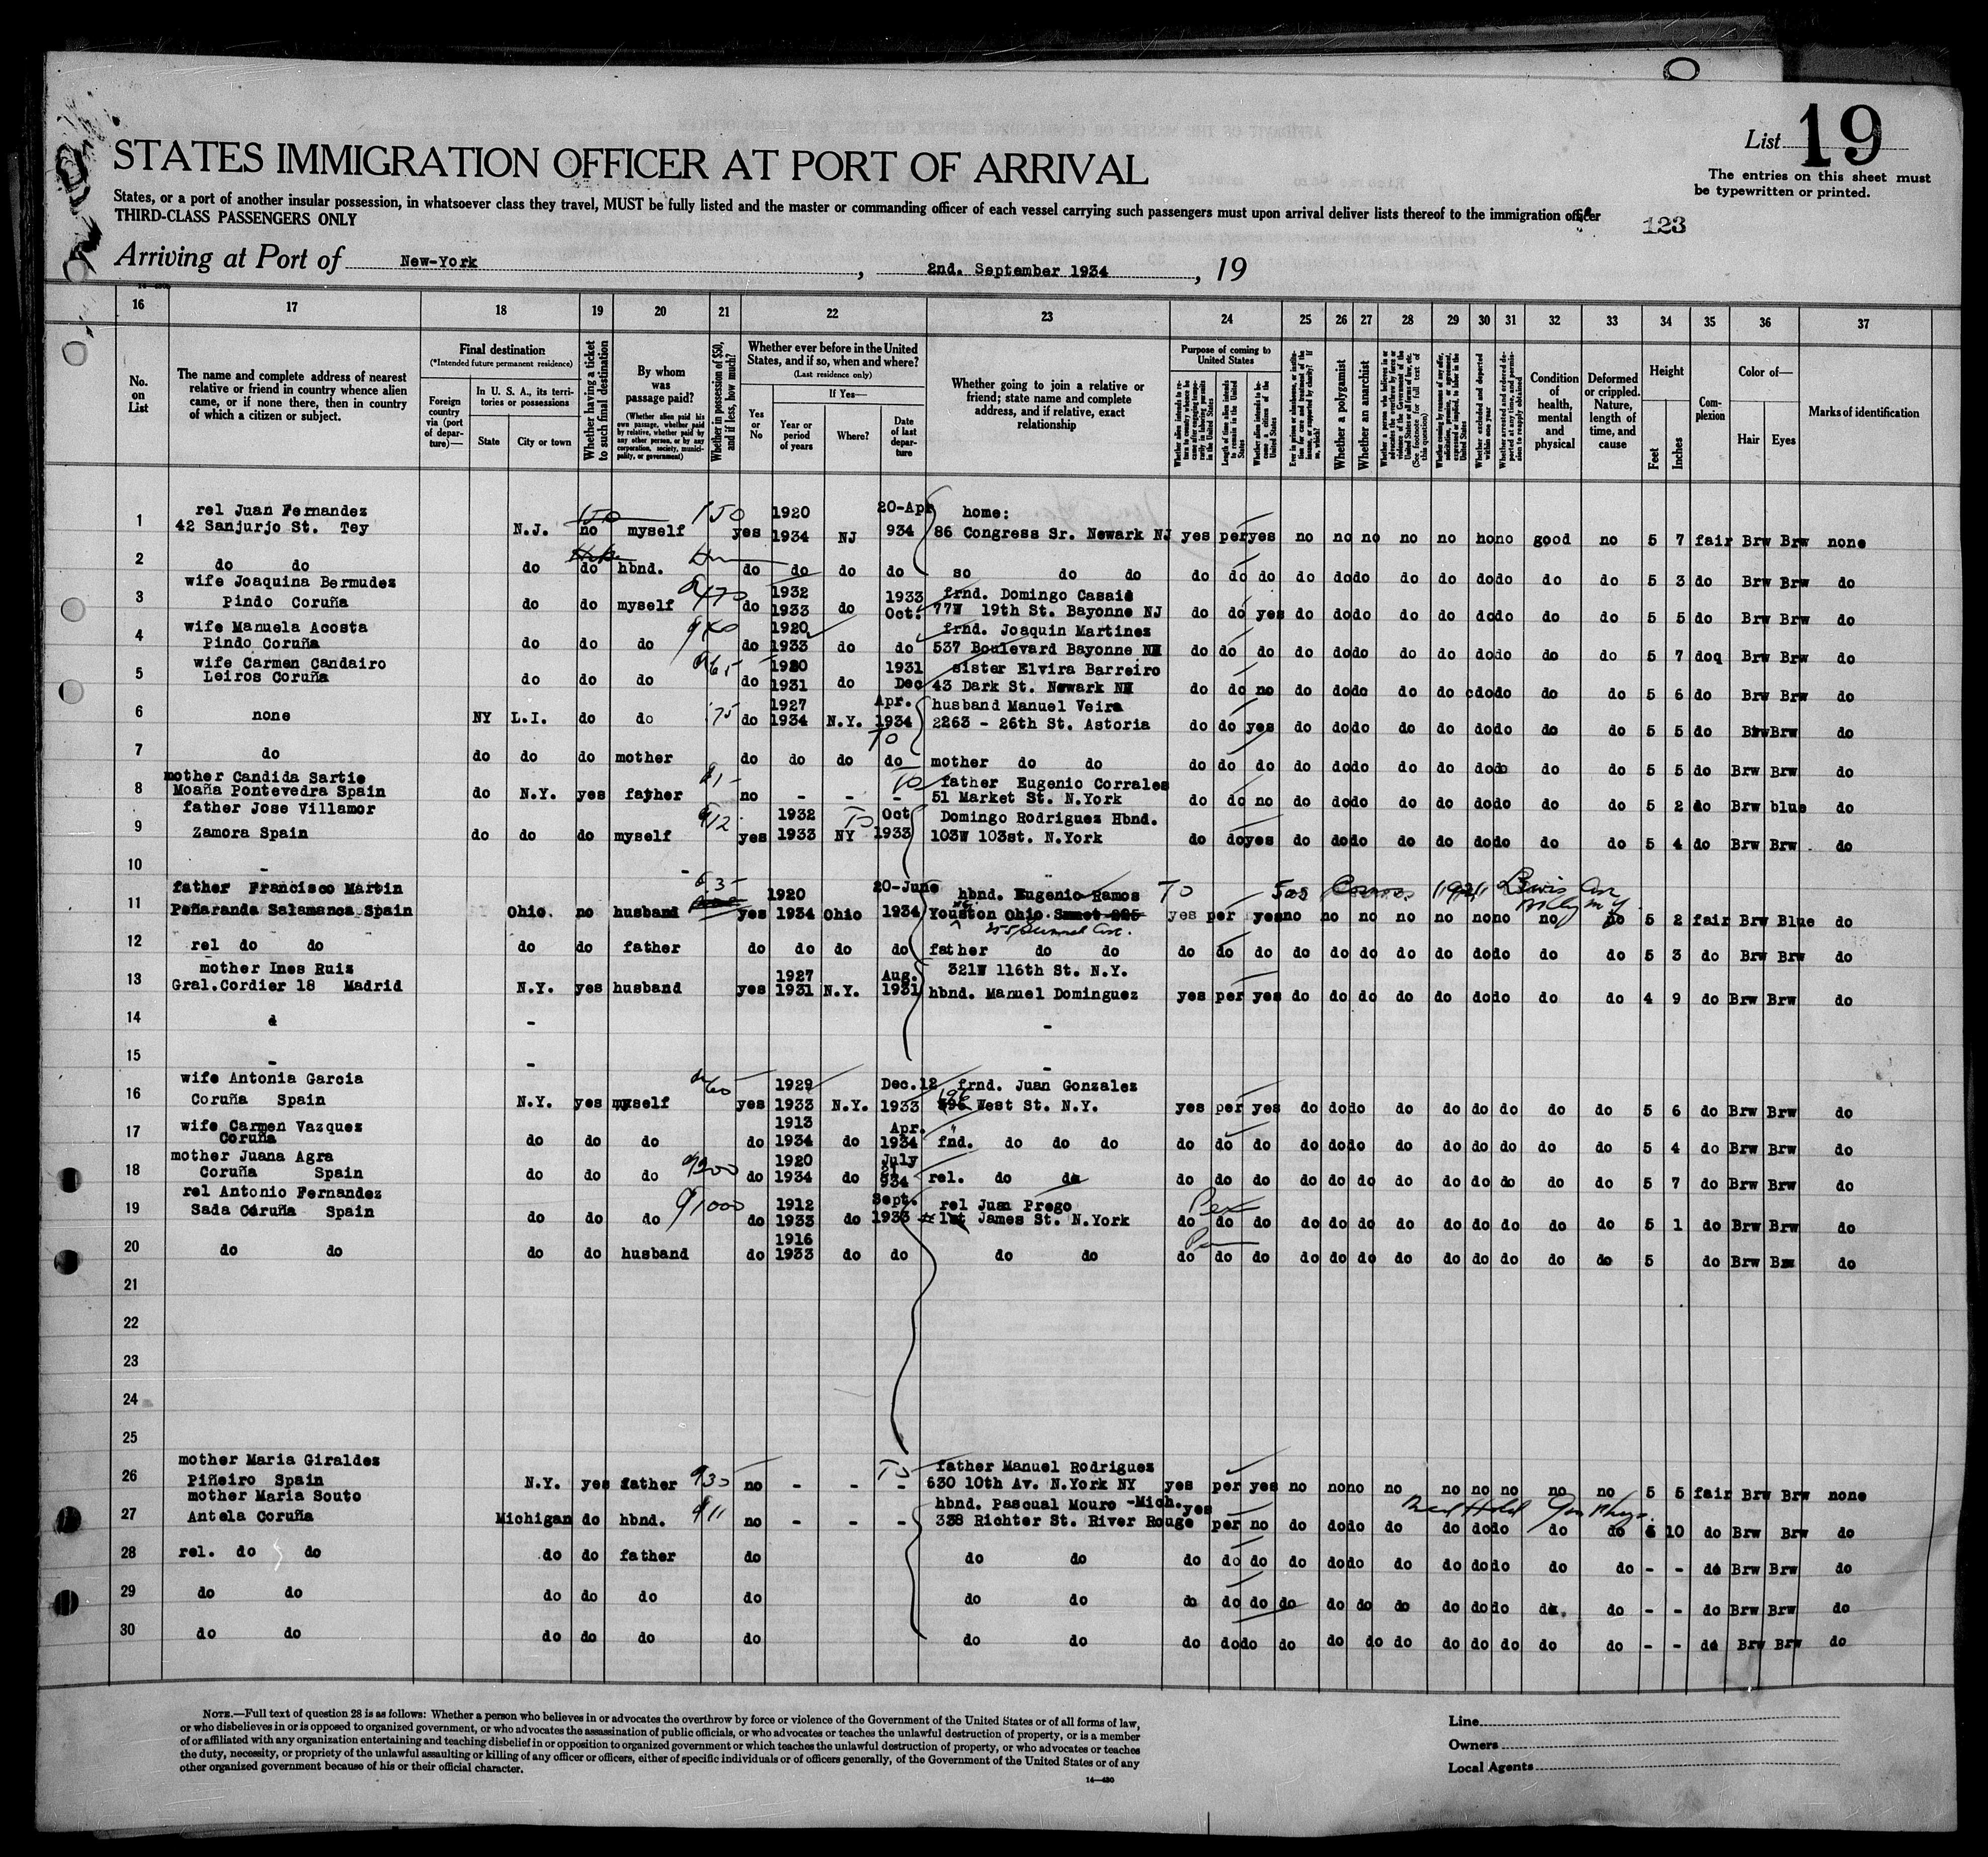 List 19
The entries on this sheet must
be typewritten or printed.
STATES IMMIGRATION OFFICER AT PORT OF ARRIVAL
States, or a port of another insular possession, in whatsoever class they travel, MUST be fully listed and the master or commanding officer of each vessel carrying such passengers must upon arrival deliver lists thereof to the immigration officer
THIRD-CLASS PASSENGERS ONLY
123
Arriving at Port of New-York, 2nd. September 1934, 19
16 17 18 19 20 21 22 23 24 25 26 27 28 29 30 31 32 33 34 35 36 37
No. on List
The name and complete address of nearest relative or friend in country whence alien came, or if none there, then in country of which a citizen or subject.
Final destination
(*Intended future permanent residence)
Foreign country via (port of departure)—
In U. S. A., its territories or possessions
State
City or town
Whether having a ticket to such final destination
By whom was passage paid?
(Whether alien paid his own passage, whether paid by relative, whether paid by any other person, or by any corporation, society, municipality, or government)
Whether in possession of $50, and if less, how much?
Whether ever before in the United States, and if so, when and where?
(Last residence only)
Yes or No
If Yes—
Year or period of years
Where?
Date of last departure
Whether going to join a relative or friend; state name and complete address, and if relative, exact relationship
Purpose of coming to United States
Whether a polygamist
Whether an anarchist
Condition of health, mental and physical
Deformed or crippled. Nature, length of time, and cause
Height
Feet
Inches
Complexion
Color of—
Hair
Eyes
Marks of identification
rel Juan Fernandez 1920 20-Apr home:
1 42 Sanjurjo St. Tey N.J. no myself 150 yes 1934 NJ 934 86 Congress Sr. Newark NJ yes per yes no no no no no no no good no 5 7 fair Brw Brw none
2 do do do do hbnd. do do do do so do do do do do do do do do do do do do do 5 3 do Brw Brw do
wife Joaquina Bermudez 1932 1933 frnd. Domingo Casais
3 Pindo Coruña do do myself do 1933 do Oct. 77W 19th St. Bayonne NJ do do yes do do do do do do do do do 5 5 do Brw Brw do
wife Manuela Acosta 1920 frnd. Joaquin Martinez
4 Pindo Coruña do do do do 1933 do do 537 Boulevard Bayonne do do do do do do do do do do do do 5 7 doq Brw Brw do
wife Carmen Candairo 1920 1931 sister Elvira Barreiro
5 Leiros Coruña do do do do 1931 do Dec 43 Dark St. Newark do do no do do do do do do do do do 5 6 do Brw Brw do
1927 Apr. husband Manuel Veira
6 none NY L.I. do do 75 do 1934 N.Y. 1934 2263 - 26th St. Astoria do do yes do do do do do do do do do 5 5 do Brw Brw do
7 do do do do mother do do do do mother do do do do do do do do do do do do do do 5 5 do Brw Brw do
mother Candida Sartie father Eugenio Corrales
8 Moaña Pontevedra Spain do N.Y. yes father no - - - 51 Market St. N.York do do no do do do do do do do do do 5 2 do Brw blue do
father Jose Villamor 1932 Oct Domingo Rodriguez Hbnd.
9 Zamora Spain do do do myself yes 1933 NY 1933 103W 103st. N.York do do yes do do do do do do do do do 5 4 do Brw Brw do
10 -
father Francisco Martin 1920 20-June hbnd. Eugenio Ramos
11 Peñaranda Salamanca Spain Ohio. no husband yes 1934 Ohio 1934 Youston Ohio yes per yes no no no no no no no no no 5 2 fair Brw Blue do
12 rel do do do do father do do do do father do do do do do do do do do do do do do do 5 3 do Brw Brw do
mother Ines Ruiz 1927 Aug. 321W 116th St. N.Y.
13 Gral.Cordier 18 Madrid N.Y. yes husband yes 1931 N.Y. 1931 hbnd. Manuel Dominguez yes per yes do do do do do do do do do 4 9 do Brw Brw do
14 - -
15 - - -
wife Antonia Garcia 1929 Dec.12 frnd. Juan Gonzalez
16 Coruña Spain N.Y. yes myself 60 yes 1933 N.Y. 1933 196 West St. N.Y. yes per yes do do do do do do do do do 5 6 do Brw Brw do
wife Carmen Vazquez 1913 Apr. "
17 Coruña do do do do 1934 do 1934 fnd. do do do do do do do do do do do do do do do 5 4 do Brw Brw do
mother Juana Agra 1920 July 21
18 Coruña Spain do do do do 1934 do 934 rel. do do do do do do do do do do do do do do 5 7 do Brw Brw do
rel Antonio Fernandez 1912 Sept. rel Juan Prego
19 Sada Coruña Spain do do do 1000 do 1933 do 1933 James St. N.York do do do do do do do do do do do do 5 1 do Brw Brw do
1916
20 do do do do husband do 1933 do do do do do do do do do do do do do do do do 5 do Brw do
21
22
23
24
25
mother Maria Giraldez father Manuel Rodriguez
26 Piñeiro Spain N.Y. yes father 30 no - - - 630 10th Av. N.York NY yes per yes no no no no no no no no no 5 5 fair Brw Brw none
mother Maria Souto hbnd. Pascual Mouro -Mich. yes
27 Antela Coruña Michigan do hbnd. 11 no - - - 338 Richter St. River Rouge per no do do do do do do do do do 10 do Brw Brw do
28 rel. do do do do father do do do do do do do do do do do do do do do - - do Brw Brw do
29 do do do do do do do do do do do do do do do do do do do - - do Brw Brw do
30 do do do do do do do do do do do do do do do do do do do do - - do Brw Brw do
NOTE.—Full text of question 28 is as follows: Whether a person who believes in or advocates the overthrow by force or violence of the Government of the United States or of all forms of law,
or who disbelieves in or is opposed to organized government, or who advocates the assassination of public officials, or who advocates or teaches the unlawful destruction of property, or is a member
of or affiliated with any organization entertaining and teaching disbelief in or opposition to organized government or which teaches the unlawful destruction of property, or who advocates or teaches
the duty, necessity, or propriety of the unlawful assaulting or killing of any officer or officers, either of specific individuals or of officers generally, of the Government of the United States or of any
other organized government because of his or their official character.
14—480
Line
Owners
Local Agents